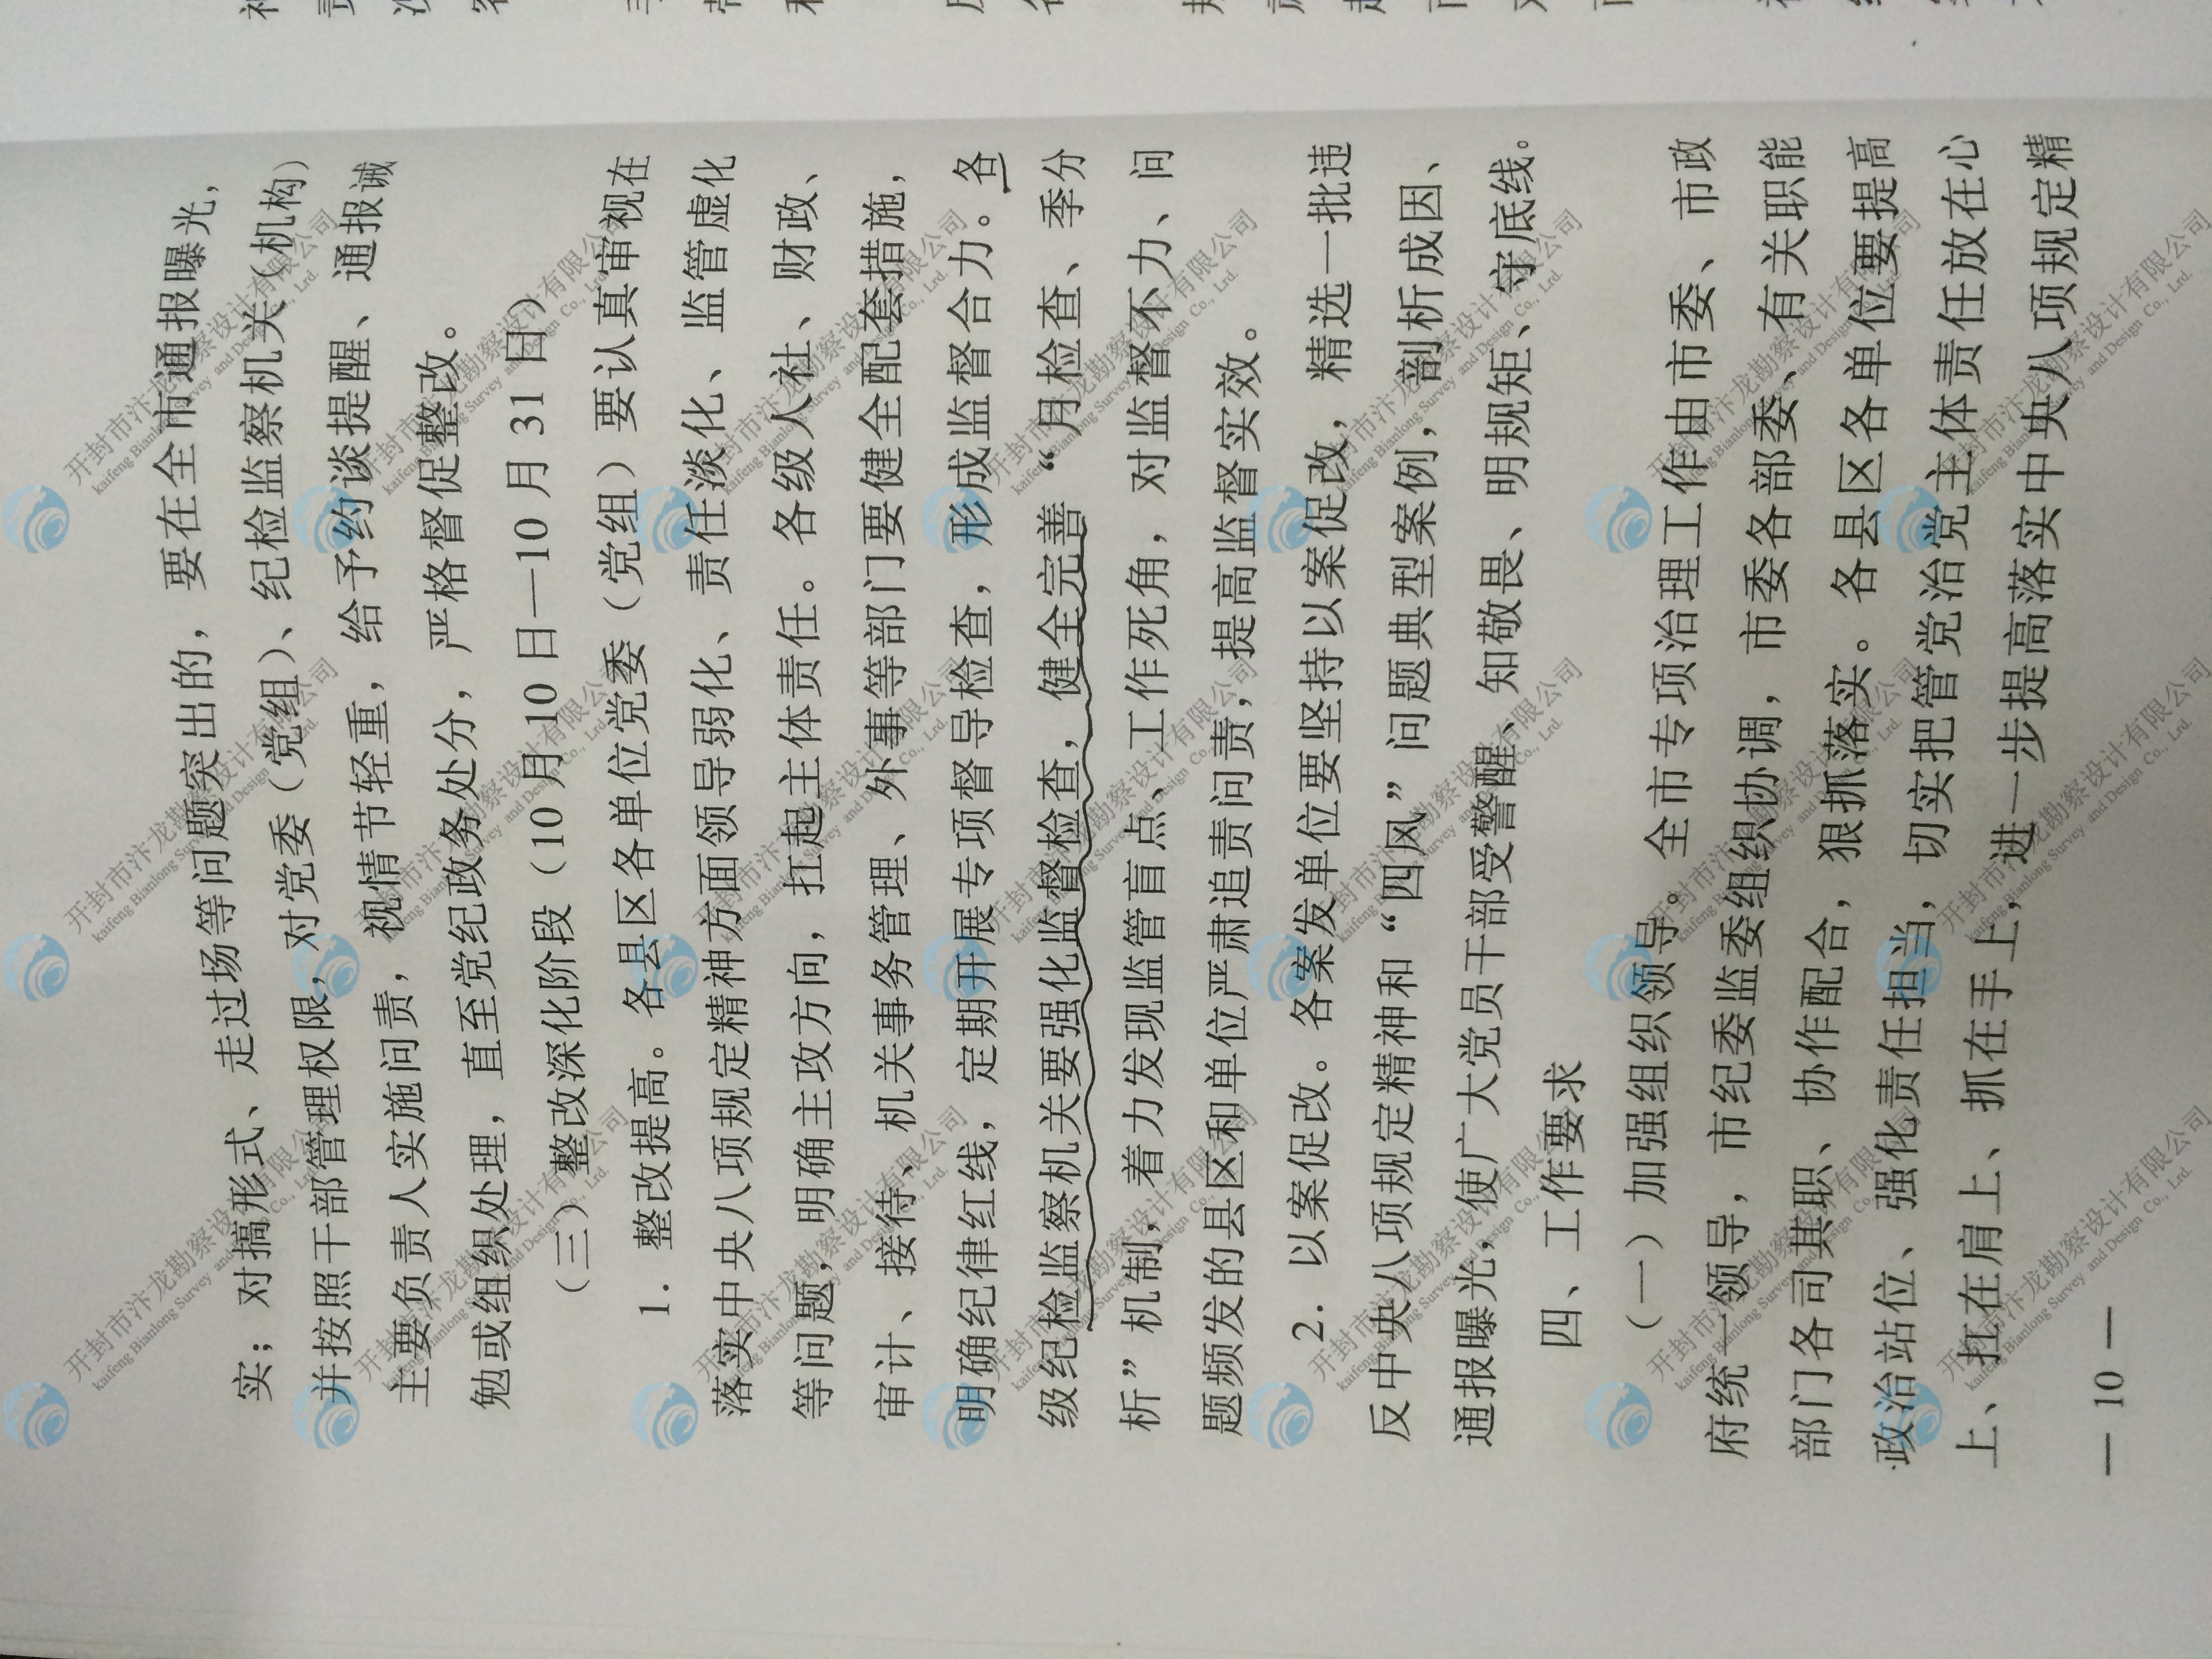 实；对搞形式、走过场等问题突出的，要在全市通报曝光，
并按照干部管理权限，对党委（党组）、纪检监察机关（机构）
主要负责人实施问责，视情节轻重，给予约谈提醒、通报诫
勉或组织处理，直至党纪政务处分，严格督促整改。
（三）整改深化阶段（10月10日—10月31日）
1. 整改提高。各县区各单位党委（党组）要认真审视在
落实中央八项规定精神方面领导弱化、责任淡化、监管虚化
等问题，明确主攻方向，扛起主体责任。各级人社、财政、
审计、接待、机关事务管理、外事等部门要健全配套措施，
明确纪律红线，定期开展专项督导检查，形成监督合力。各
级纪检监察机关要强化监督检查，健全完善“月检查、季分
析”机制，着力发现监管盲点、工作死角，对监督不力、问
题频发的县区和单位严肃追责问责，提高监督实效。
2. 以案促改。各案发单位要坚持以案促改，精选一批违
反中央八项规定精神和“四风”问题典型案例，剖析成因、
通报曝光，使广大党员干部受警醒、知敬畏、明规矩、守底线。
四、工作要求
（一）加强组织领导。全市专项治理工作由市委、市政
府统一领导，市纪委监委组织协调，市委各部委、有关职能
部门各司其职、协作配合，狠抓落实。各县区各单位要提高
政治站位、强化责任担当，切实把管党治党主体责任放在心
上、扛在肩上、抓在手上，进一步提高落实中央八项规定精
— 10 —
开封市汴龙勘察设计有限公司
kaifeng Bianlong Survey and Design Co., Ltd.